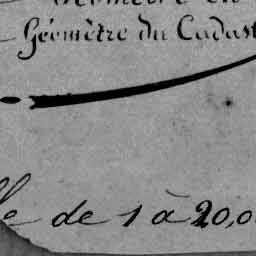 Géomètre du Cadast
le de 1 à 20,0